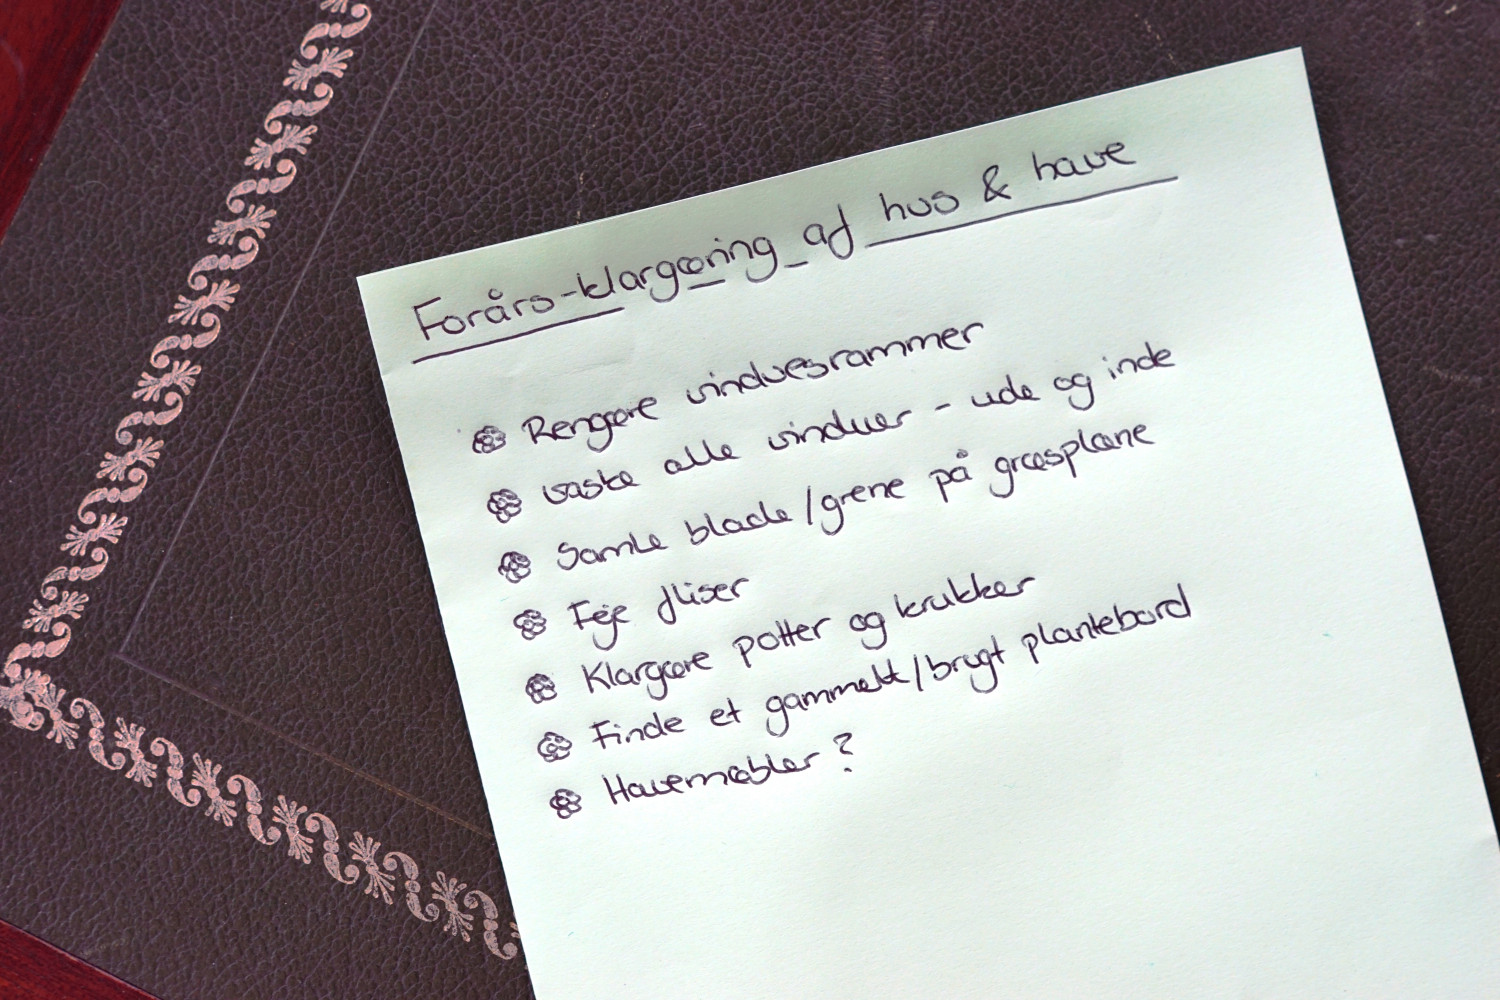 Forårs-klargøring af hus & have
Rengøre vinduesrammer
vaske alle vinduer - ude og inde
Samle blade/grene på græsplæne
Feje fliser
Klargøre potter og krukker
Finde et gammelt/brugt plantebord
Havemøbler?